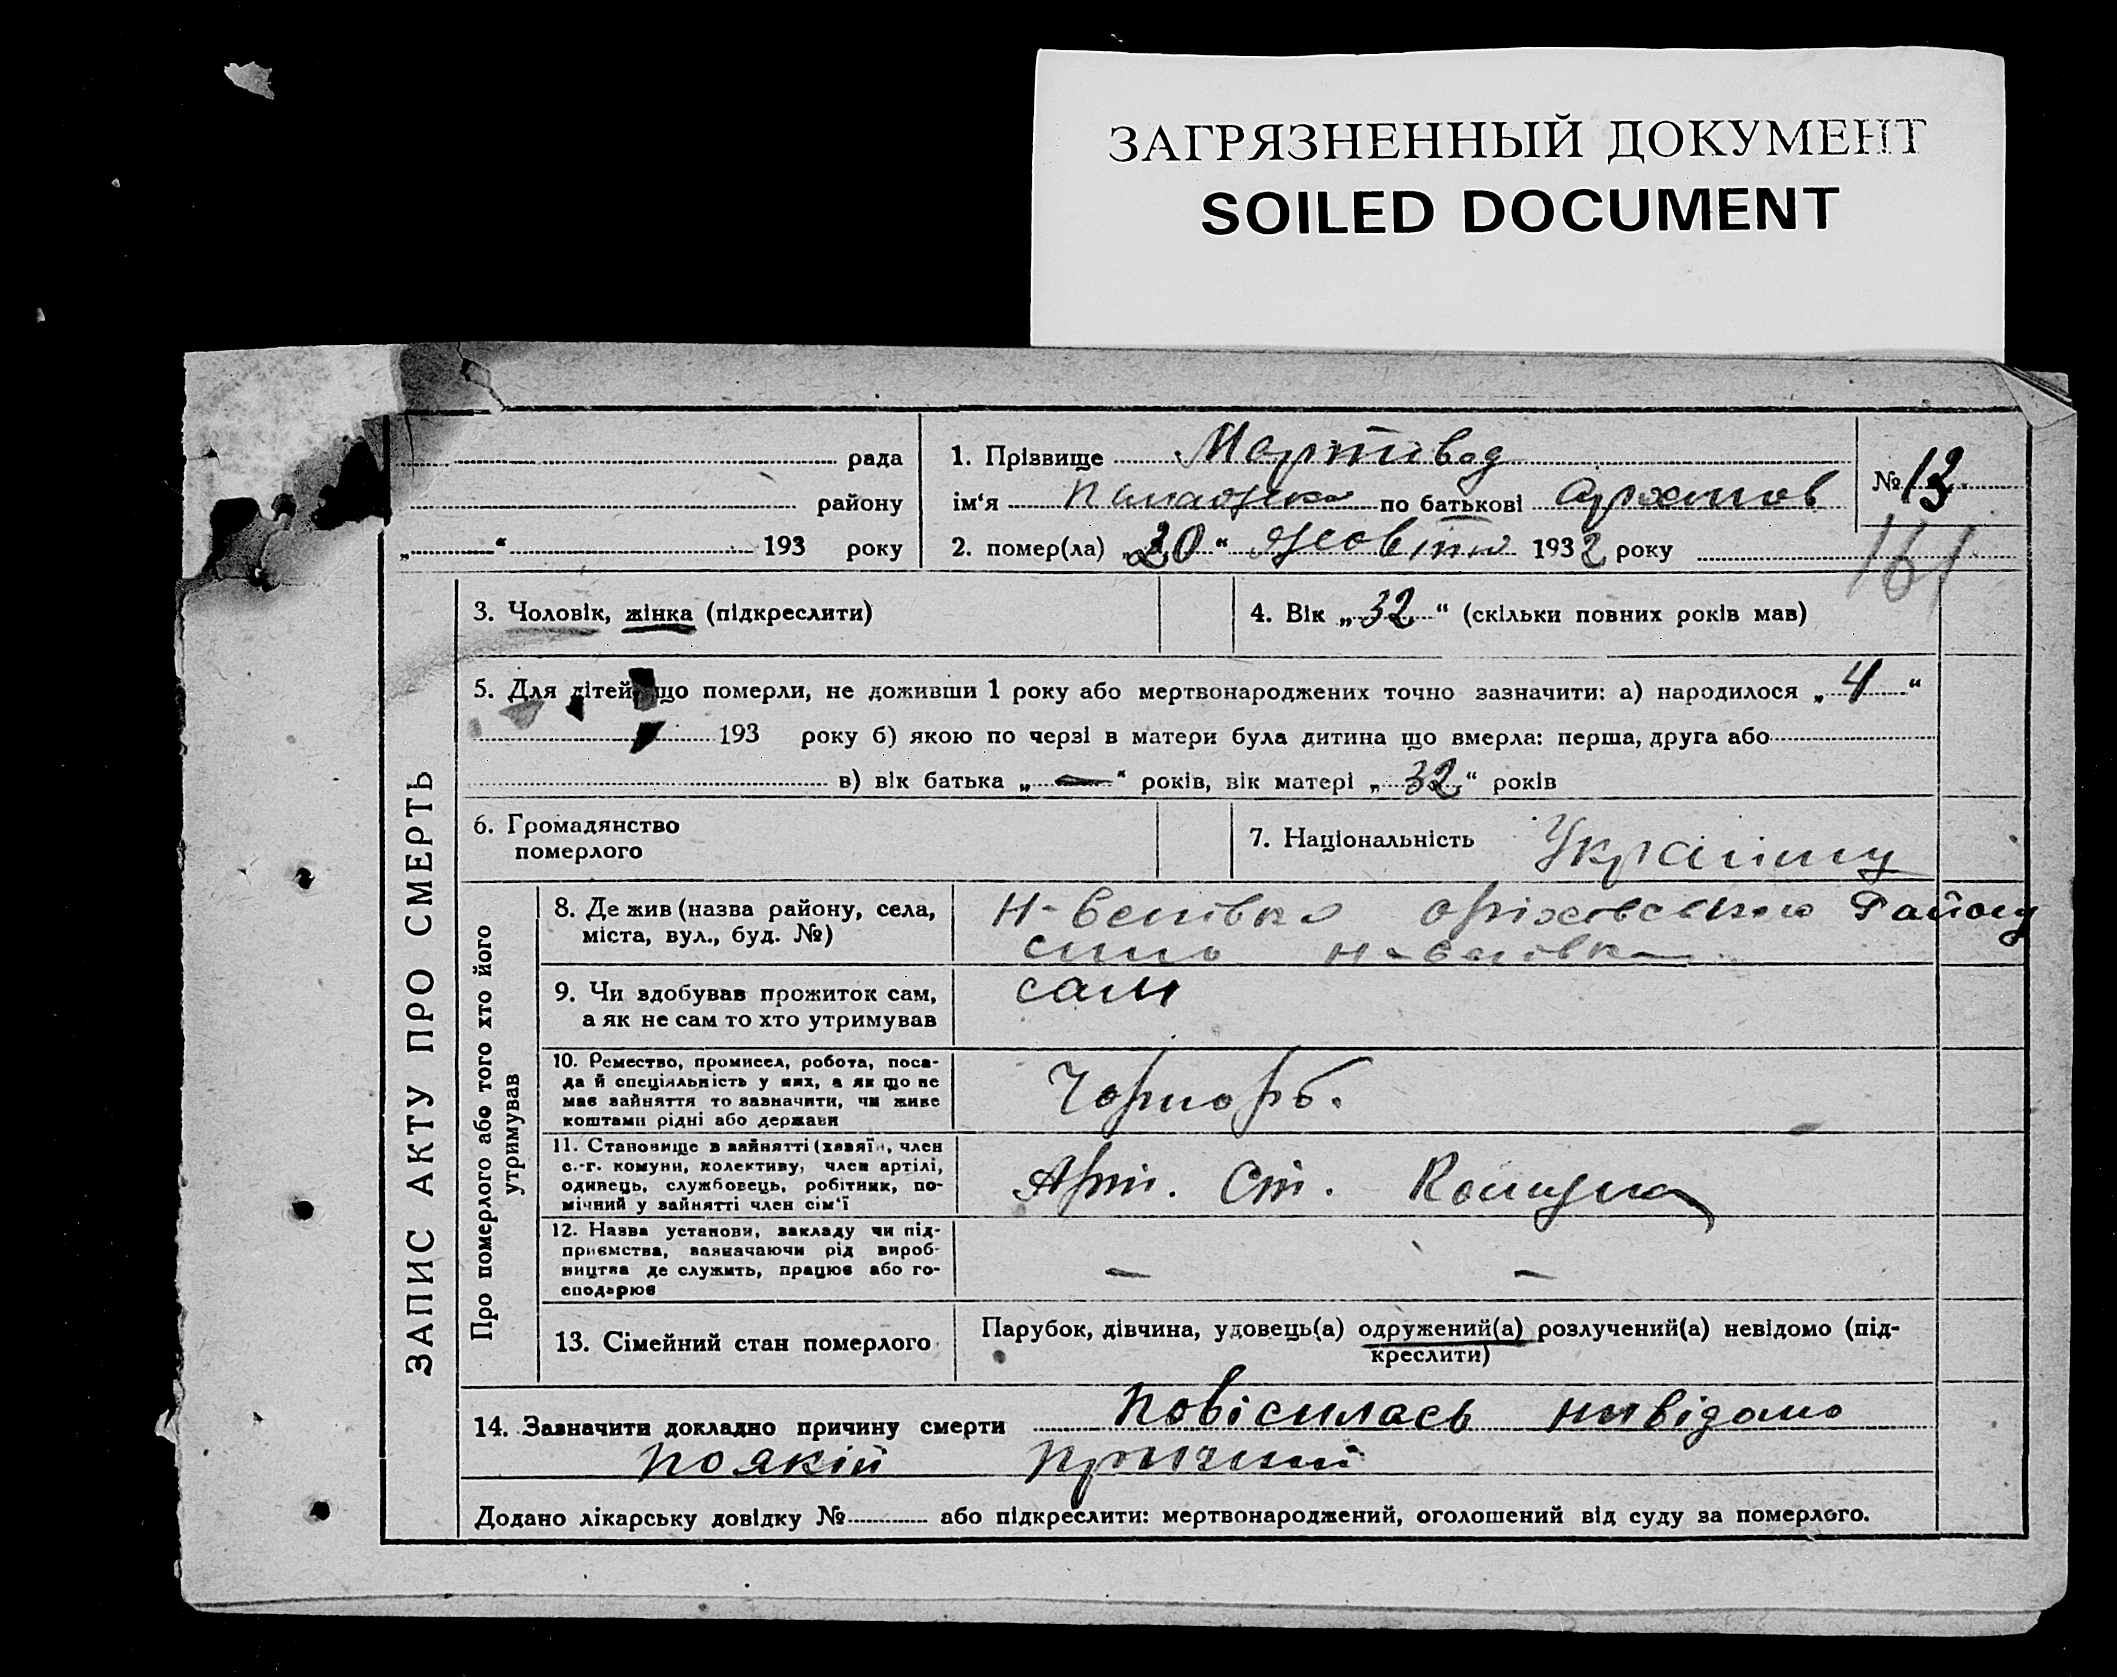 ЗАГРЯЗНЕННЫЙ ДОКУМЕНТ
SOILED DOCUMENT
рада
району
„ “ 193 року
1. Прізвище Мартивод
ім‘я по батькові Архипов
2. помер(ла) „30“ Жовтня 1932 року
№ 13
161
ЗАПИС АКТУ ПРО СМЕРТЬ
3. Чоловік, жінка (підкреслити)
4. Вік „32“ (скільки повних років мав)
5. Для дітей, що померли, не доживши 1 року або мертвонароджених точно зазначити: а) народилося „4“
193 року б) якою по черзі в матери була дитина що вмерла: перша, друга або
в) вік батька „—“ років, вік матері „32“ років
6. Громадянство
померлого
7. Національність
Про померлого або того хто його
утримував
8. Де жив (назва району, села,
міста, вул., буд. №)
Оріховського Району
9. Чи здобував прожиток сам,
а як не сам то хто утримував
сам
10. Ремество, промисел, робота, поса-
да й спеціяльність у них, а як що не
має заняття то зазначити, чи живе
коштами рідні або держави
Чорнорб.
11. Становище в зайнятті (хазяїн, член
с.-г. комуни, колективу, член артілі,
одинець, службовець, робітник, по-
мічний у зайнятті член сім‘ї
Арт. Ст.
12. Назва установи, закладу чи під-
приємства, зазначаючи рід вироб-
ництва де служить, працює або го-
сподарює
— —
13. Сімейний стан померлого
Парубок, дівчина, удовець(а) одружений(а) розлучений(а) невідомо (під-
креслити)
14. Зазначити докладно причину смерти повісилась нивідомо
по якій причині
Додано лікарську довідку № або підкреслити: мертвонароджений, оголошений від суду за померлого.